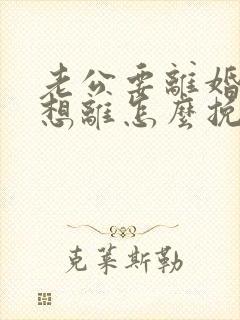 老公要離婚
想離怎麼挽
克萊斯勒